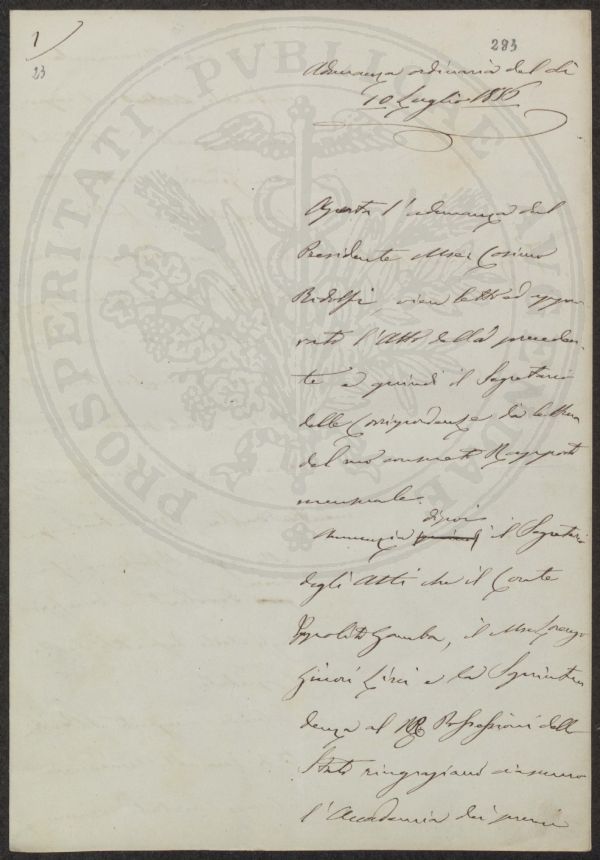 1
23
283
Adunanza ordinaria del dì
10 Luglio
Aperta l'adunanza dal
Presidente Mse Cosimo
Ridolfi, vien letto ed appro-
vato l'Atto della preceden-
te e quindi il Segretario
delle Corrispondenze dà lettura
del suo consueto Rapporto
mensuale.
dipoi
Annunzia il Segretario
degli Atti che il Conte
Ippolito Gamba, il Mse Lorenzo
Ginori Lisci e la Soprinten-
denza al Possessioni dello
Stato ringraziano
l'Accademia dei premi
PROSPERITATI PVBLICAE AVGENDAE